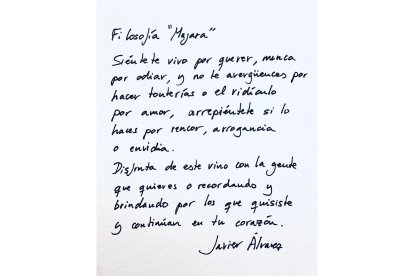 Filosofía "Majara"
Siéntete vivo por querer, nunca
por odiar, y no te avergüences por
hacer tonterías o el ridículo
por amor, arrepiéntete si lo
haces por rencor, arrogancia
o envidia.
Disfruta de este vino con la gente
que quieres o recordando y
brindando por los que quisiste
y continúan en tu corazón.
Javier Álvarez